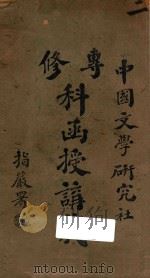 二
中國文學研究社
專修
科函授講義
指嚴署
www.mtoou.info